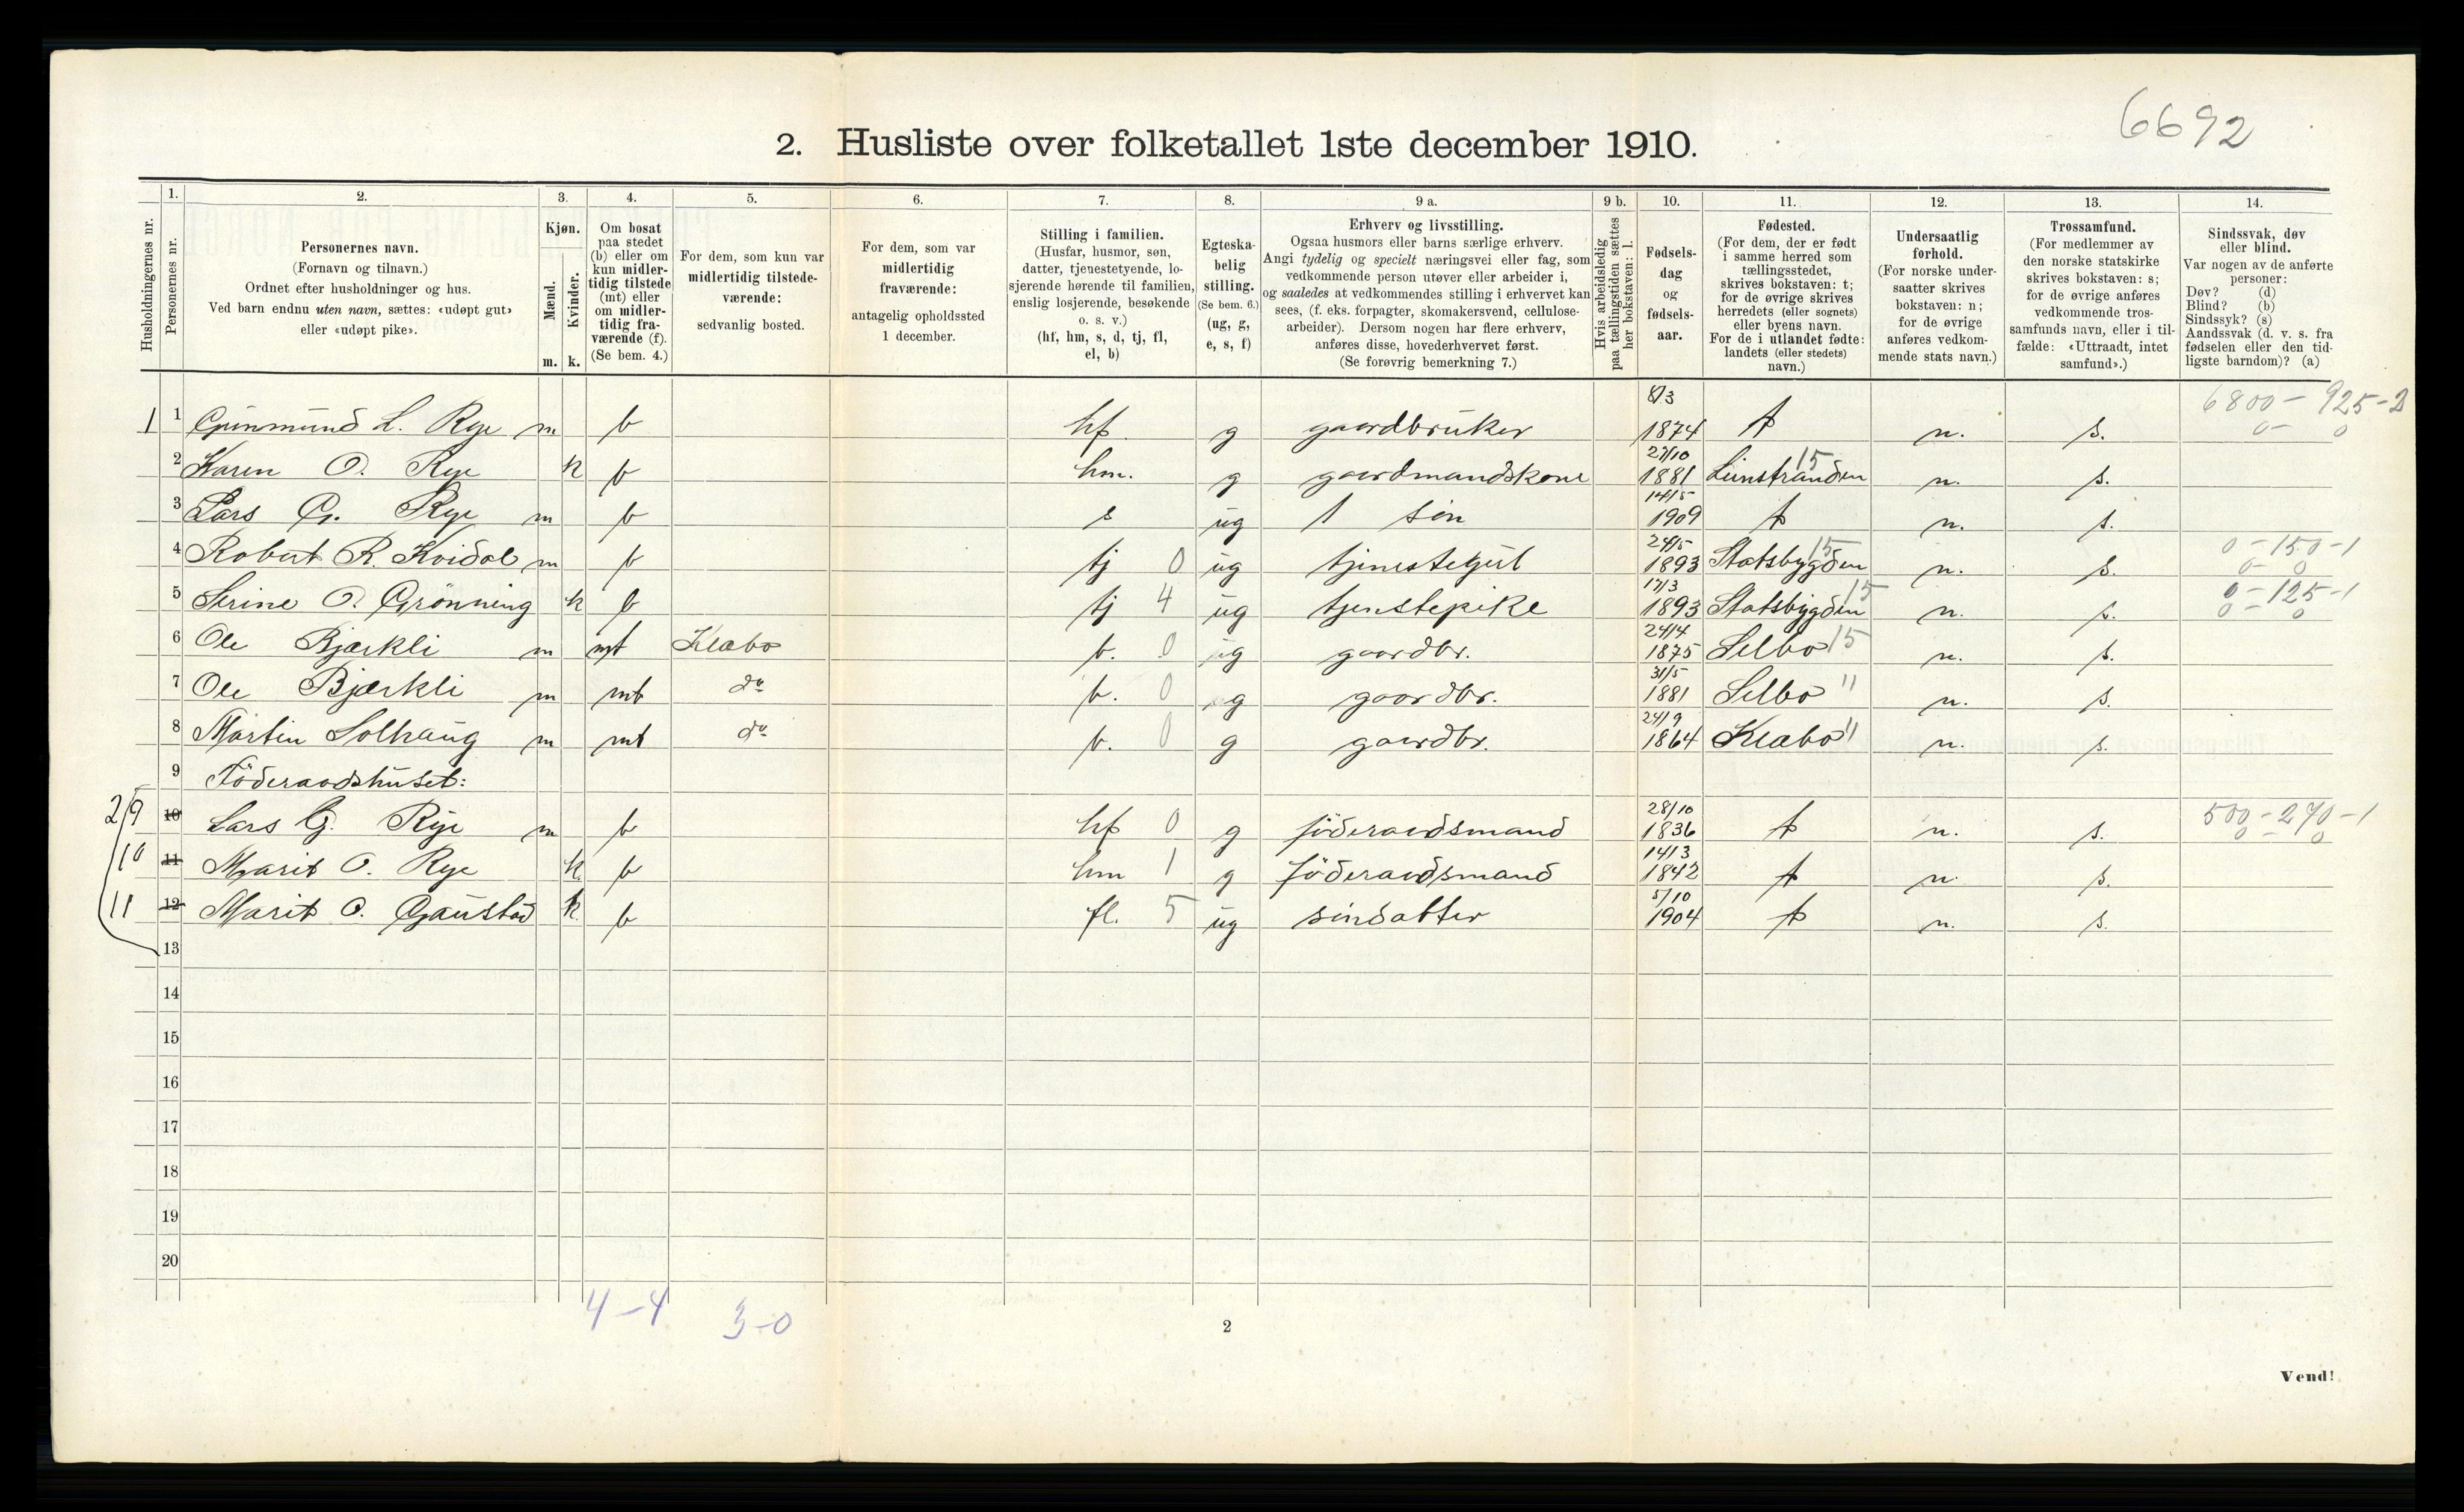 6692
2. Husliste over folketallet 1ste december 1910.
Husholdningernes nr.
1. Personernes nr.
2. Personernes navn. (Fornavn og tilnavn.) Ordnet efter husholdninger og hus. Ved barn endnu uten navn, sættes: «udøpt gut» eller «udøpt pike».
3. Kjøn. Mænd. m. Kvinder. k.
4. Om bosat paa stedet (b) eller om kun midlertidig tilstede (mt) eller om midlertidig fraværende (f). (Se bem. 4.)
5. For dem, som kun var midlertidig tilstedeværende: sedvanlig bosted.
6. For dem, som var midlertidig fraværende: antagelig opholdssted 1 december.
7. Stilling i familien. (Husfar, husmor, søn, datter, tjenestetyende, losjerende hørende til familien, enslig losjerende, besøkende o. s. v.) (hf, hm, s, d, tj, fl, el, b)
8. Egteskabelig stilling. (Se bem. 6.) (ug, g, e, s, f)
9 a. Erhverv og livsstilling. Ogsaa husmors eller barns særlige erhverv. Angi tydelig og specielt næringsvei eller fag, som vedkommende person utøver eller arbeider i, og saaledes at vedkommendes stilling i erhvervet kan sees, (f. eks. forpagter, skomakersvend, cellulosearbeider). Dersom nogen har flere erhverv, anføres disse, hovederhvervet først. (Se forøvrig bemerkning 7.)
9 b. Hvis arbeidsledig paa tællingstiden sættes her bokstaven: l.
10. Fødselsdag og fødselsaar.
11. Fødested. (For dem, der er født i samme herred som tællingsstedet, skrives bokstaven: t; for de øvrige skrives herredets (eller sognets) eller byens navn. For de i utlandet fødte: landets (eller stedets) navn.)
12. Undersaatlig forhold. (For norske undersaatter skrives bokstaven: n; for de øvrige anføres vedkommende stats navn.)
13. Trossamfund. (For medlemmer av den norske statskirke skrives bokstaven: s; for de øvrige anføres vedkommende trossamfunds navn, eller i tilfælde: «Uttraadt, intet samfund».)
14. Sindssvak, døv eller blind. Var nogen av de anførte personer: Døv? (d) Blind? (b) Sindssyk? (s) Aandssvak (d. v. s. fra fødselen eller den tidligste barndom)? (a)
1 1 Gunmund L. Rye m b hf. g gaardbruker 8/3 1874 t n. s. 6800 - 925-2 0- 0
2 Karen O. Rye k b hm. g gaardmandskone 27/10 1881 Lenstranden 15 n. s.
3 Lars G. Rye m b s ug 1 søn 14/5 1909 t n. s.
4 Robert R. Kvidal m b tj 0 ug tjenestegut 24/5 1893 Statsbygden 15 n. s. 0-150-1 0- 0
5 Serine O. Grönning k b tj 4 ug tjenstepike 17/3 1893 Statsbygden 15 n. s. 0-125-1 0- 0
6 Ole Bjærkli m mt Klæbo b. 0 ug gaardbr. 24/4 1875 Selbo 15 n. s.
7 Ole Bjærkli m mt do b. 0 g gaardbr. 31/5 1881 Selbo " n. s.
8 Martin Solhaug m mt do b. 0 g gaardbr. 24/9 1864 Klæbo " n. s.
9 Föderaadshuset:
2 9 10 Lars G. Rye m b hf 0 g föderaadsmand 28/10 1836 t n. s. 500-270-1 0- 0
10 11 Marit O. Rye k b hm 1 g föderaadsmand 14/3 1842 t n. s.
11 12 Marit O. Gaustad k b fl. 5 ug sindatter 5/10 1904 t n. s.
13
14
15
16
17
18
19
20
4-4 3-0
2
Vend!